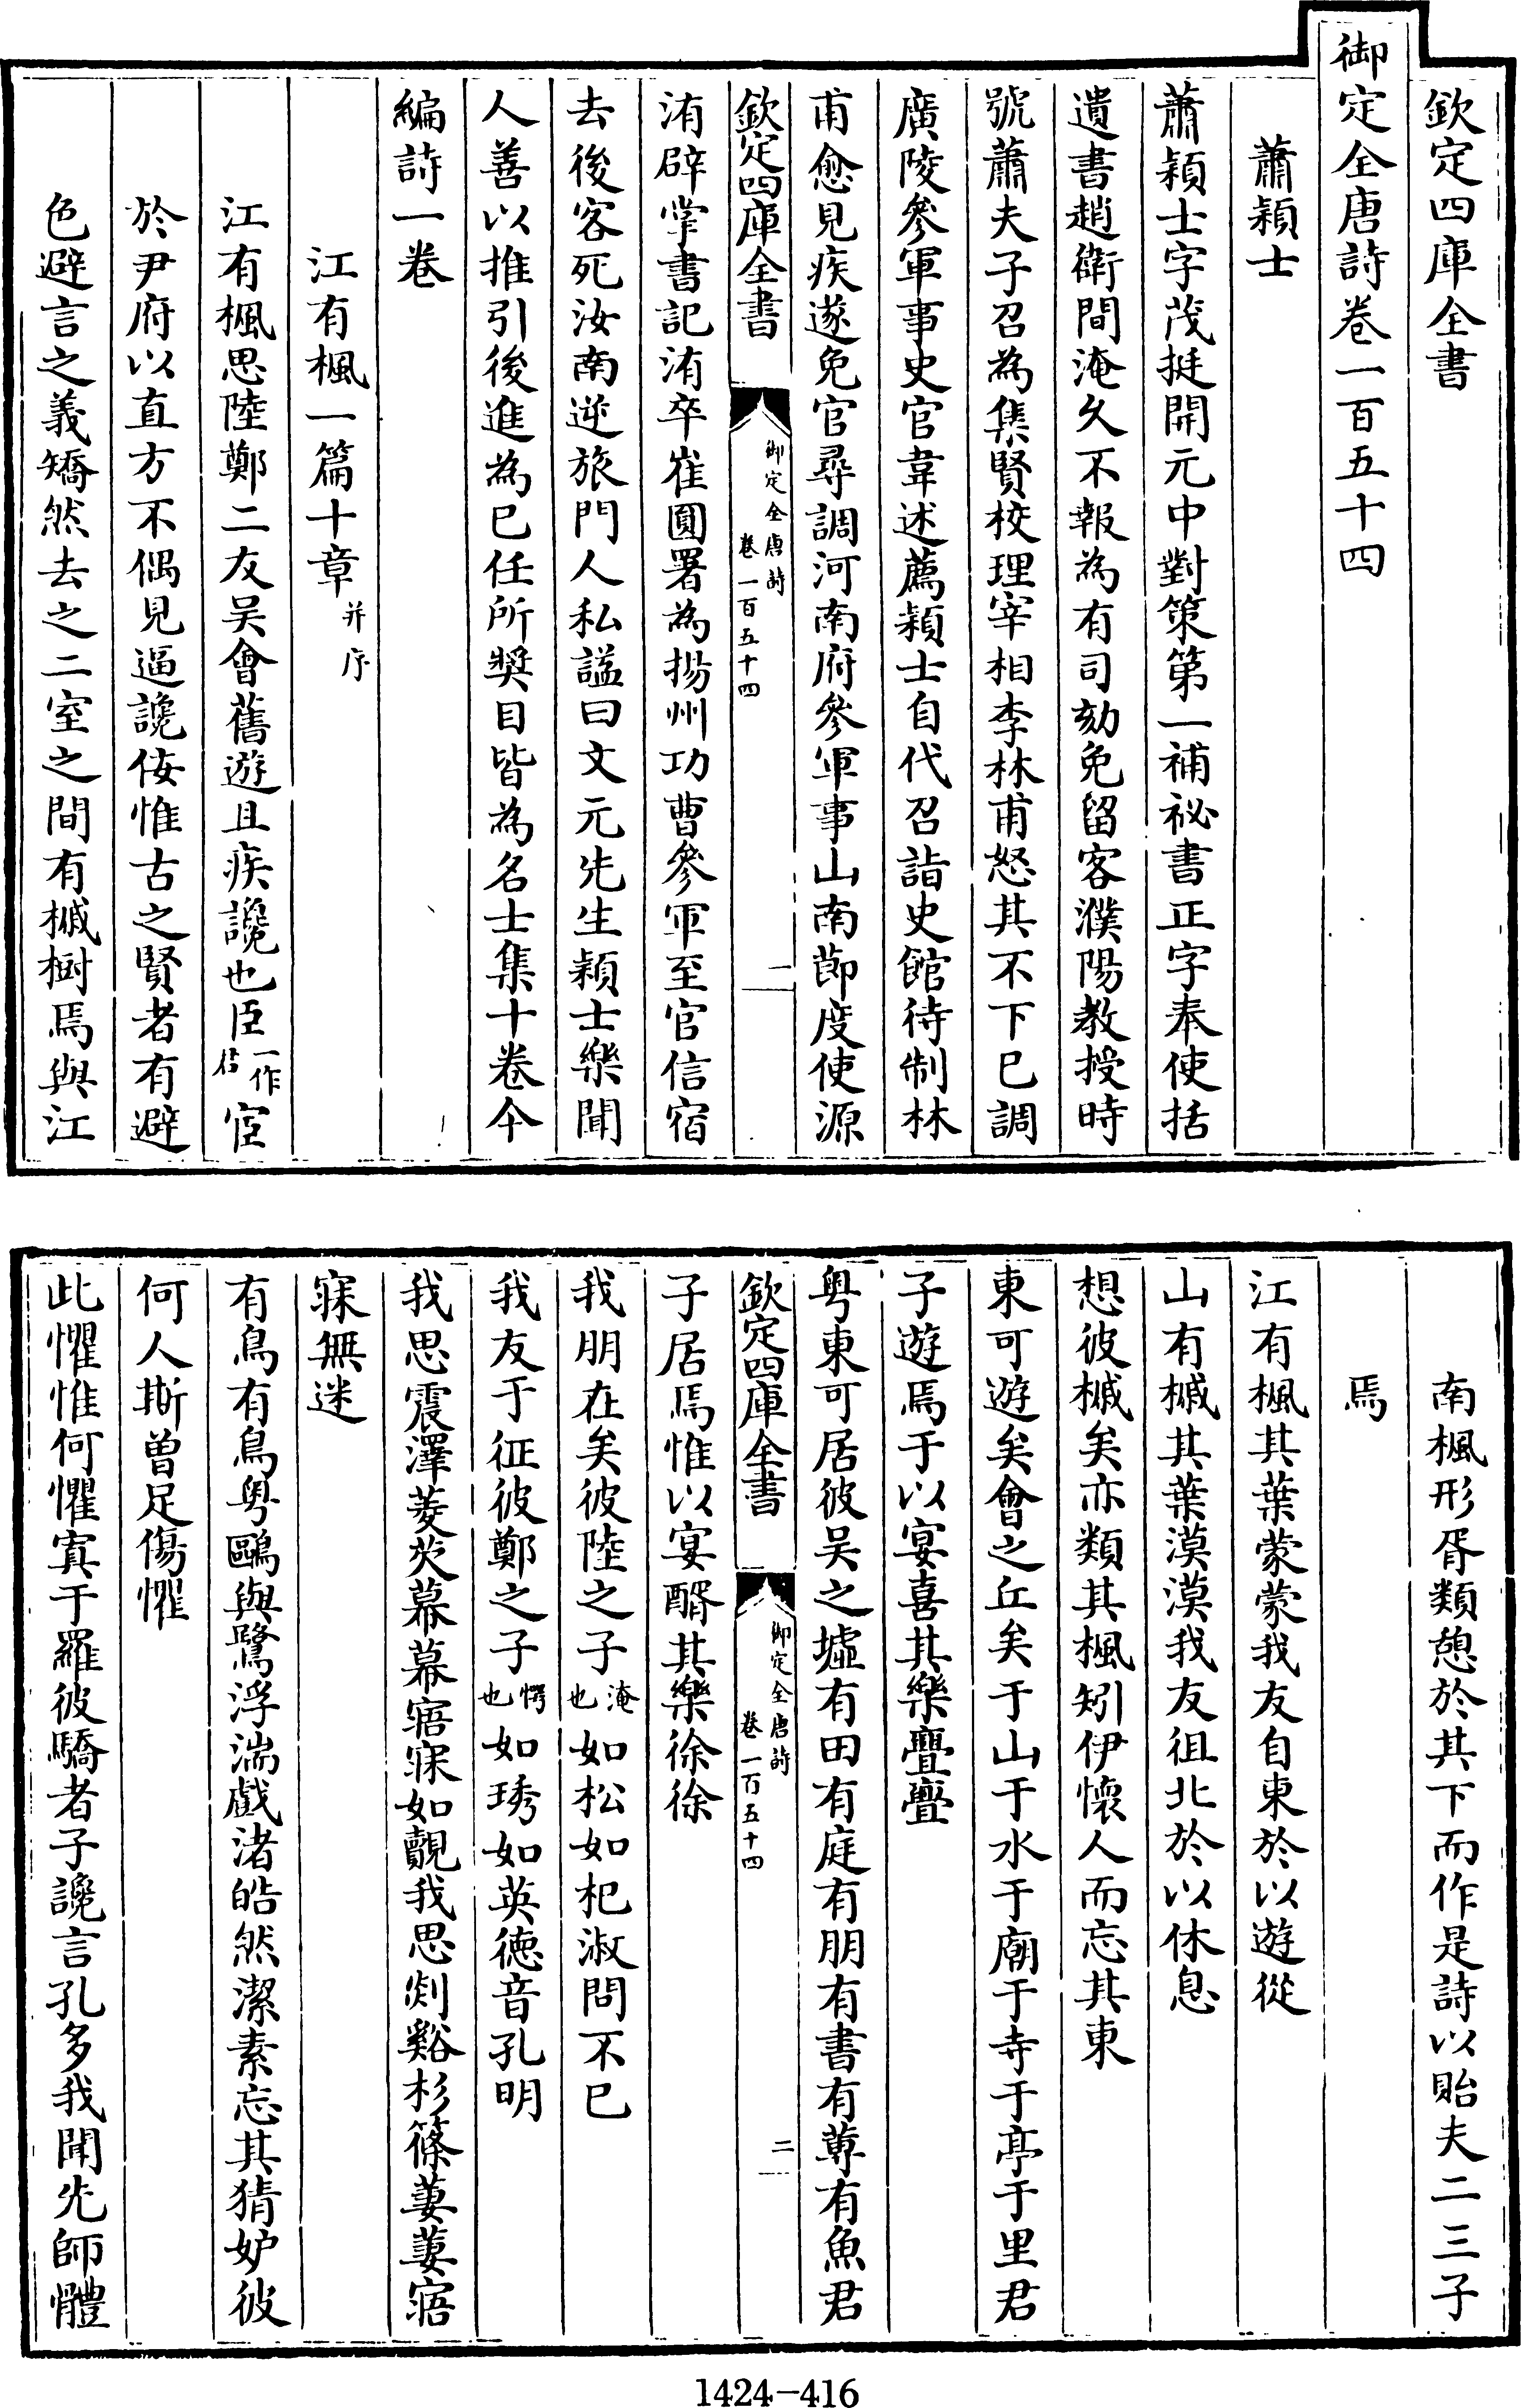 欽定四庫全書
御定全唐詩卷一百五十四
蕭穎士
蕭穎士字茂挺開元中對策第一補祕書正字奉使括
遺書趙衛間淹久不報為有司劾免留客濮陽教授時
號蕭夫子召為集賢校理宰相李林甫怒其不下已調
廣陵參軍事史官韋述薦穎士自代召詣史館待制林
甫愈見疾遂免官尋調河南府參軍事山南節度使源
欽定四庫全書
御定全唐詩
卷一百五十四
一
洧辟掌書記洧卒崔圓署為揚州功曹參軍至官信宿
去後客死汝南逆旅門人私諡曰文元先生穎士樂聞
人善以推引後進為已任所奬目皆為名士集十卷今
編詩一卷
江有楓一篇十章并序
江有楓思陸鄭二友吴會舊遊且疾讒也臣一作君宦
於尹府以直方不偶見逼讒侫惟古之賢者有避
色避言之義矯然去之二室之間有槭樹焉與江
南楓形胥類憩於其下而作是詩以貽夫二三子
焉
江有楓其葉蒙蒙我友自東於以遊從
山有槭其葉漠漠我友徂北於以休息
想彼槭矣亦類其楓矧伊懷人而忘其東
東可遊矣會之丘矣于山于水于廟于寺于亭于里君
子遊焉于以宴喜其樂亹亹
粤東可居彼吴之墟有田有庭有朋有書有蓴有魚君
欽定四庫全書
御定全唐詩
卷一百五十四
二
子居焉惟以宴醑其樂徐徐
我朋在矣彼陸之子淹也如松如杞淑問不已
我友于征彼鄭之子愕也如琇如英德音孔明
我思震澤菱芡幕幕寤寐如覿我思剡谿杉篠萋萋寤
寐無迷
有鳥有鳥粤鷗與鷺浮湍戲渚皓然潔素忘其猜妒彼
何人斯曾足傷懼
此懼惟何懼寘于羅彼驕者子讒言孔多我聞先師體
1424-416